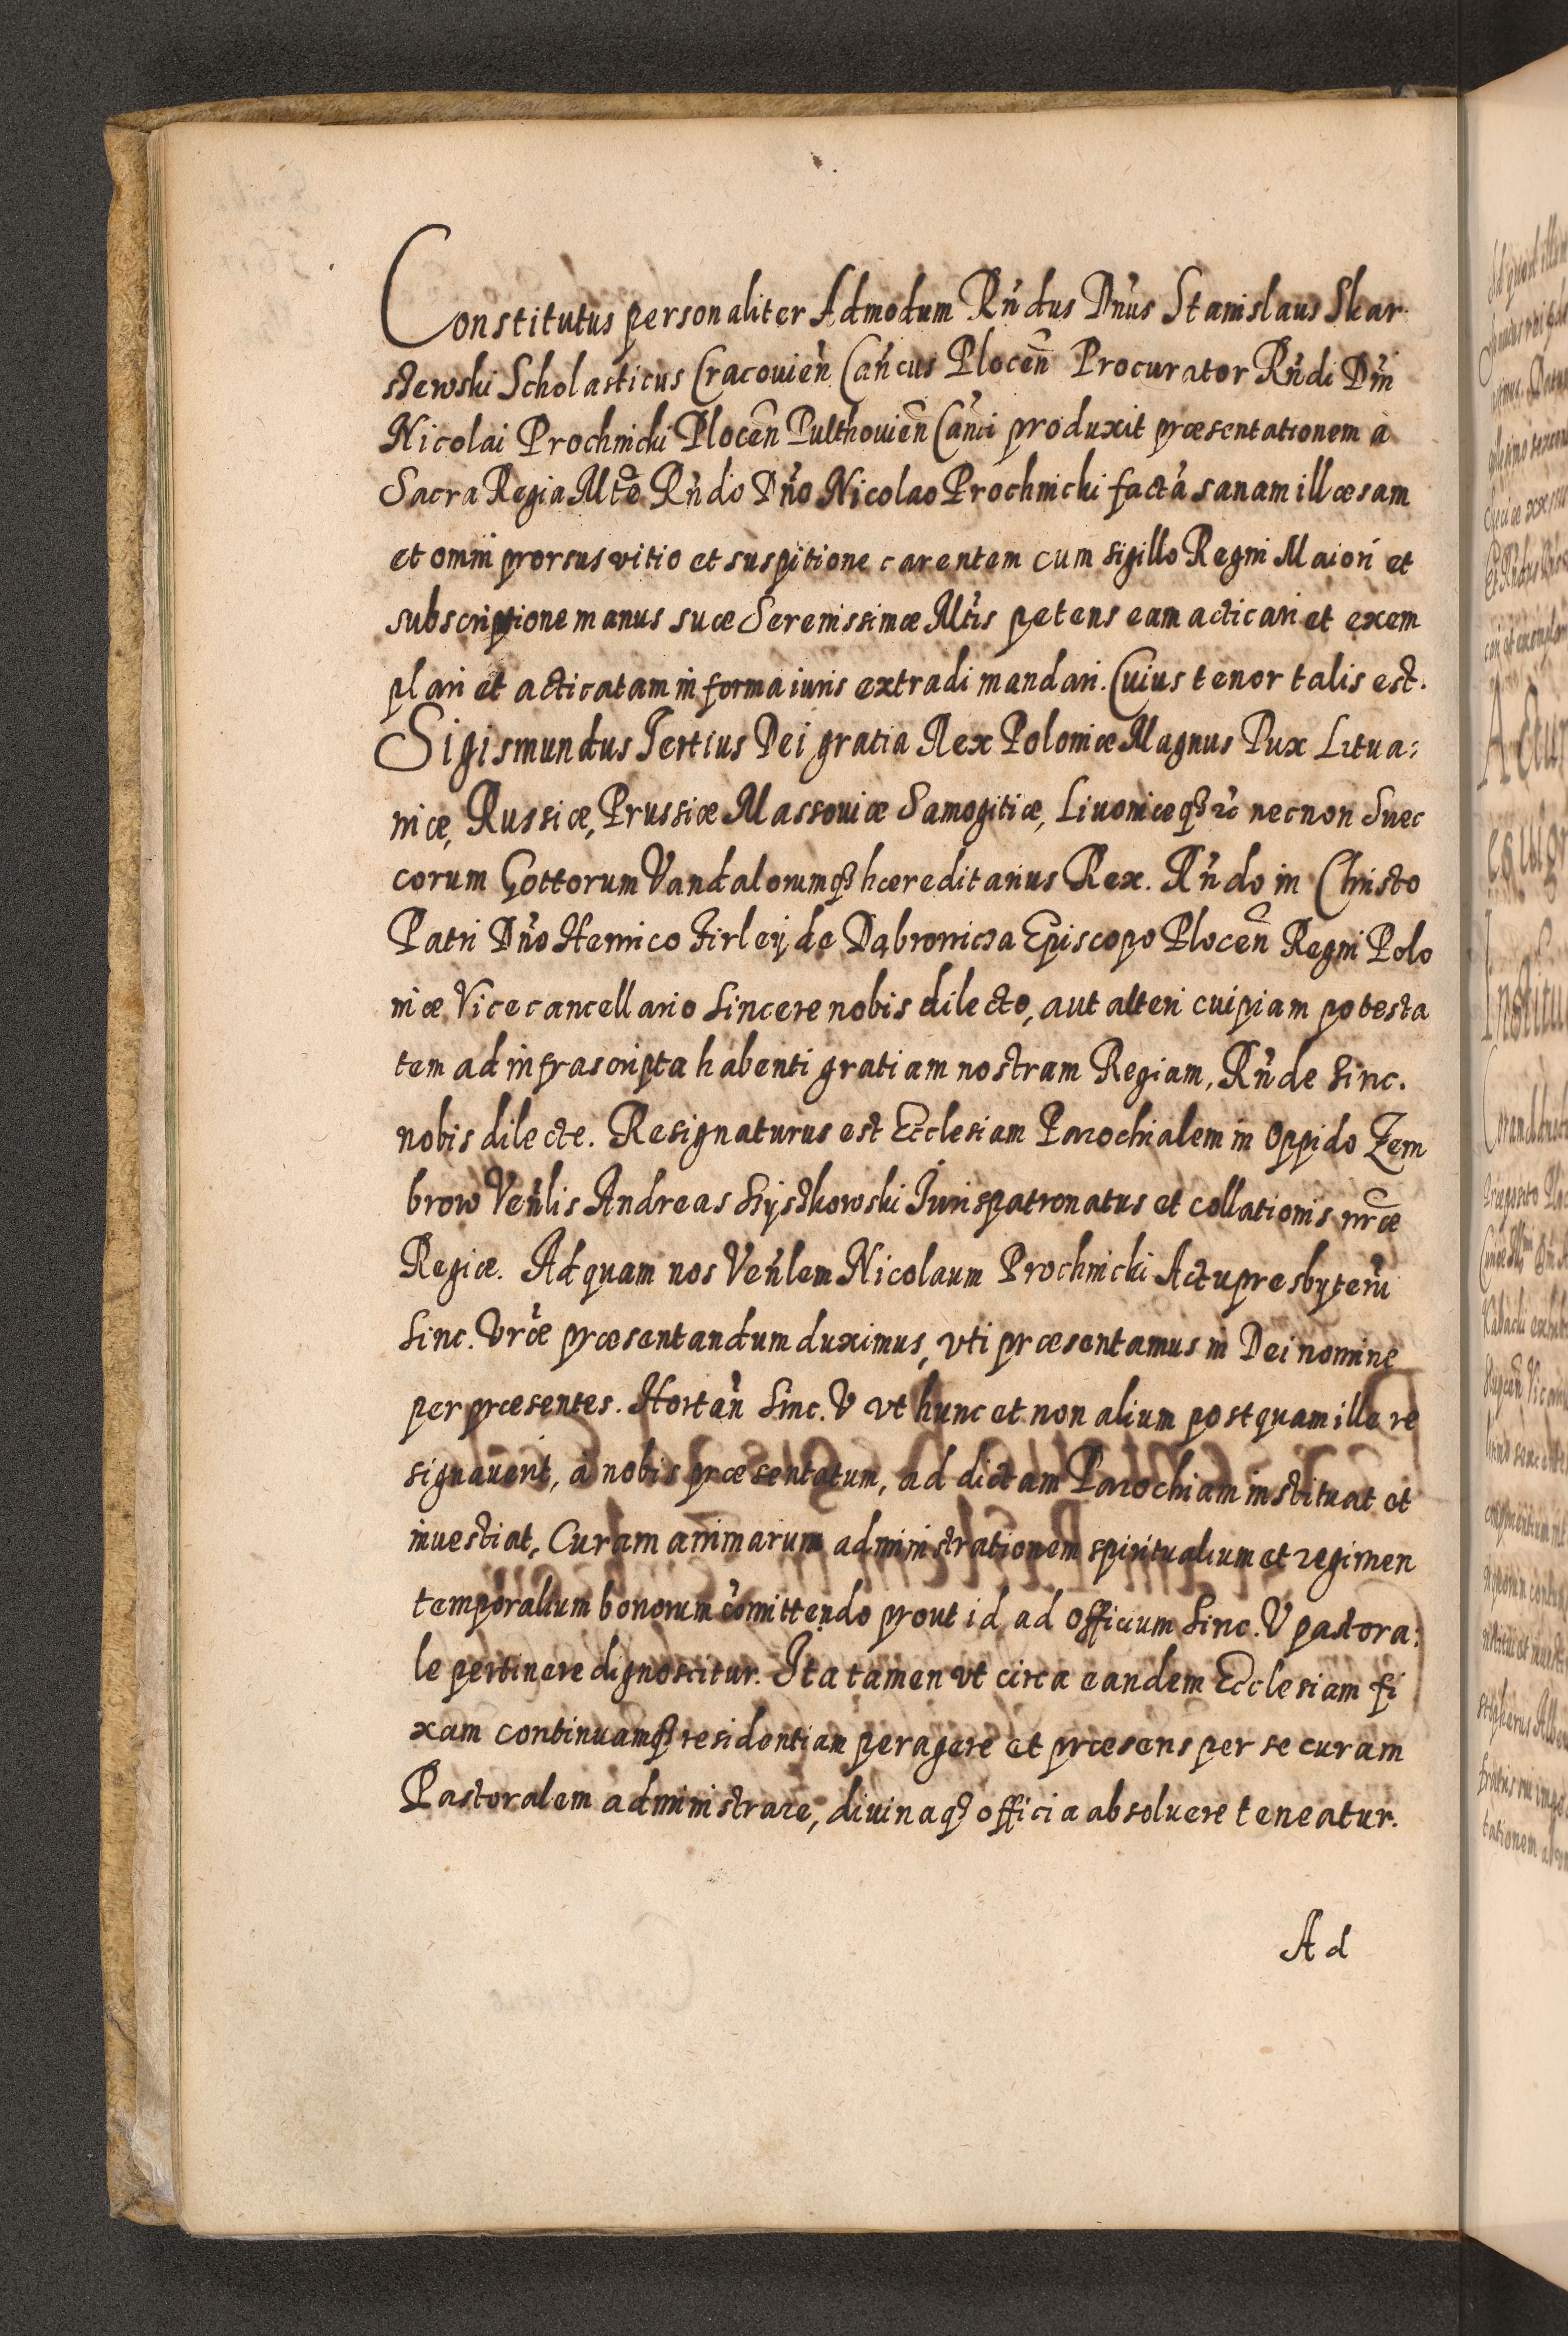 Constitutus personaliter Admodum Rńdus Dńus Stanislaus Skar
stewski Scholasticus Cracouień Cańcus Plocen̄ Procurator Rńdi Dńi
Nicolai Prochnicki Plocen̄ Pulthouien̄ Cańci produxit præsentationem à
Sacra Regia Mt̄e Rńdo Dńo Nicolao Prochnicki factā sanam illæsam
et omni prorsus vitio et suspitione carentem cum sigillo Regni Maiori et
subscriptione manus suæ Serenissimæ Mtis petens eam acticari et exem
plari et acticatam in forma iuris extradi mandari. Cuius tenor talis est.
Sigismundus Tertius Dei gratia Rex Poloniæ Magnus Dux Litua:
niæ, Russiæ, Prussiæ Massouiæ Samogitiæ, Liuoniæq3 &c necnon Suec
corum Gottorum Vandalorumq3 hæreditarius Rex. Rńdo in Christo
Patri Dńo Henrico Firleÿ de Dąbrowica Episcopo Plocen̄ Regni Polo
niæ Vicecancellario Sincere nobis dilecto, aut alteri cuipiam potesta
tem ad infrascripta habenti gratiam nostram Regiam, Rńde Sinc.
nobis dilecte. Resignaturus est Ecclesiam Parochialem in Oppido Zem
brow Veńlis Andreas Szÿszkowski Jurispatronatus et collationis nr̄æ
Regiæ. Ad quam nos Veńlem Nicolaum Prochnicki Actu presbyterū
Sinc. Vræ præsentandum duximus, vti præsentamus in Dei nomine
per præsentes. Hortań Sinc. V vt hunc et non alium postquam ille re
signauerit, à nobis præsentatum, ad dictam Parochiam instituat et
inuestiat, Curam animarum administrationem spiritualium et regimen
temporalium bonorum cōmittendo prout id ad officium Sinc. V pastora:
le pertinere dignoscitur. Ita tamen vt circa eandem Ecclesiam fi
xam continuamq3 residentiam peragere et præsens per se curam
Pastoralem administrare, diuinaq3 officia absoluere teneatur.
Ad